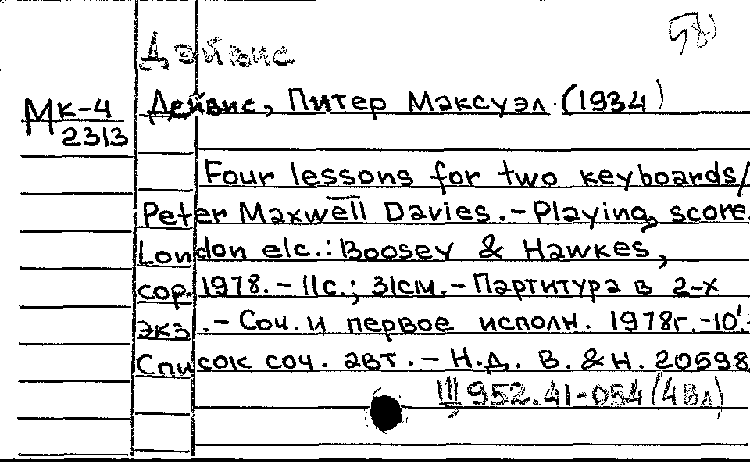 58
Дэйвис
Дейвис, Питер Максуэл (1934)
Мк-4
2313
Four lessons for two keyboards/
Peter Maxwell Davies.-Playing score.
London etc.: Boosey & Hawkes,
cop. 1978.-11с.; 31см.-Партитура в 2-х
экз.-Соч. и первое исполн. 1978г.-10'.-
Список соч. авт.-Н.д. B.&H. 20598
Ш 952.41-054 (4Вл)